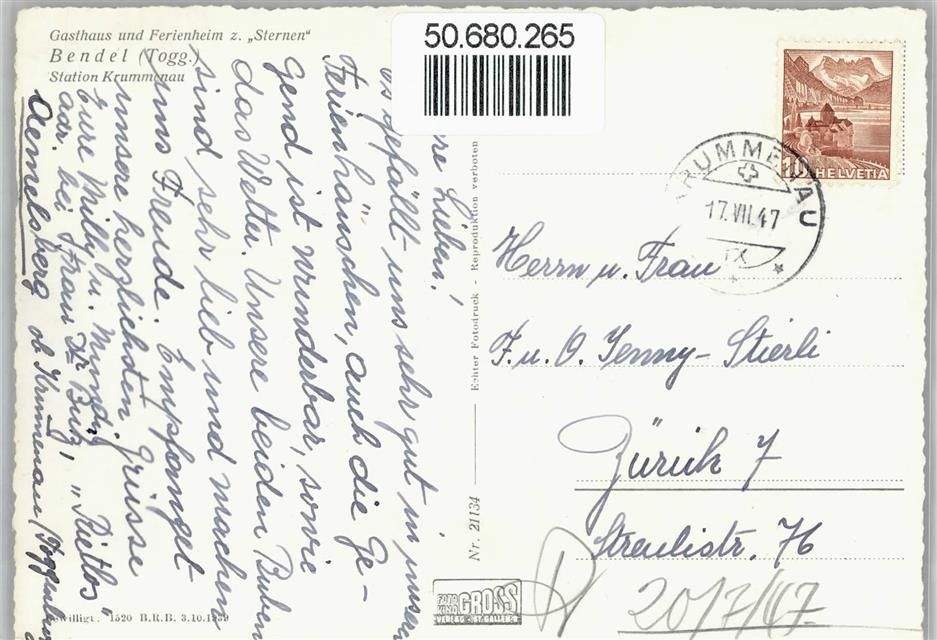 Gasthaus und Ferienheim z. „Sternen“
Bendel (Togg.)
Station Krummenau
50.680.265
10 HELVETIA
KRUMMENAU
17.VII.47
IX
Lieben!
es gefällt uns sehr gut in unserm
Ferienhäuschen, auch die Ge-
gend ist wunderbar, sowie
das Wetter. Unsere beiden Buben
sind sehr lieb und machen
uns Freude. Empfanget
unsere herzlichsten Grüsse
Eure Milly u.
adr. bei Frau Dr
Aemelsberg ob Krumenau (Toggenburg
Echter Fotodruck - Reproduktion verboten
Nr. 21134
Herrn u. Frau
F. u. O. Jenny-Stierli
Zürich 7
Streulistr. 76
R 20/7/47
FOTO KINO GROSS
VERLAG · ST. GALLEN
willigt: 1520 B.R.B. 3.10.1939